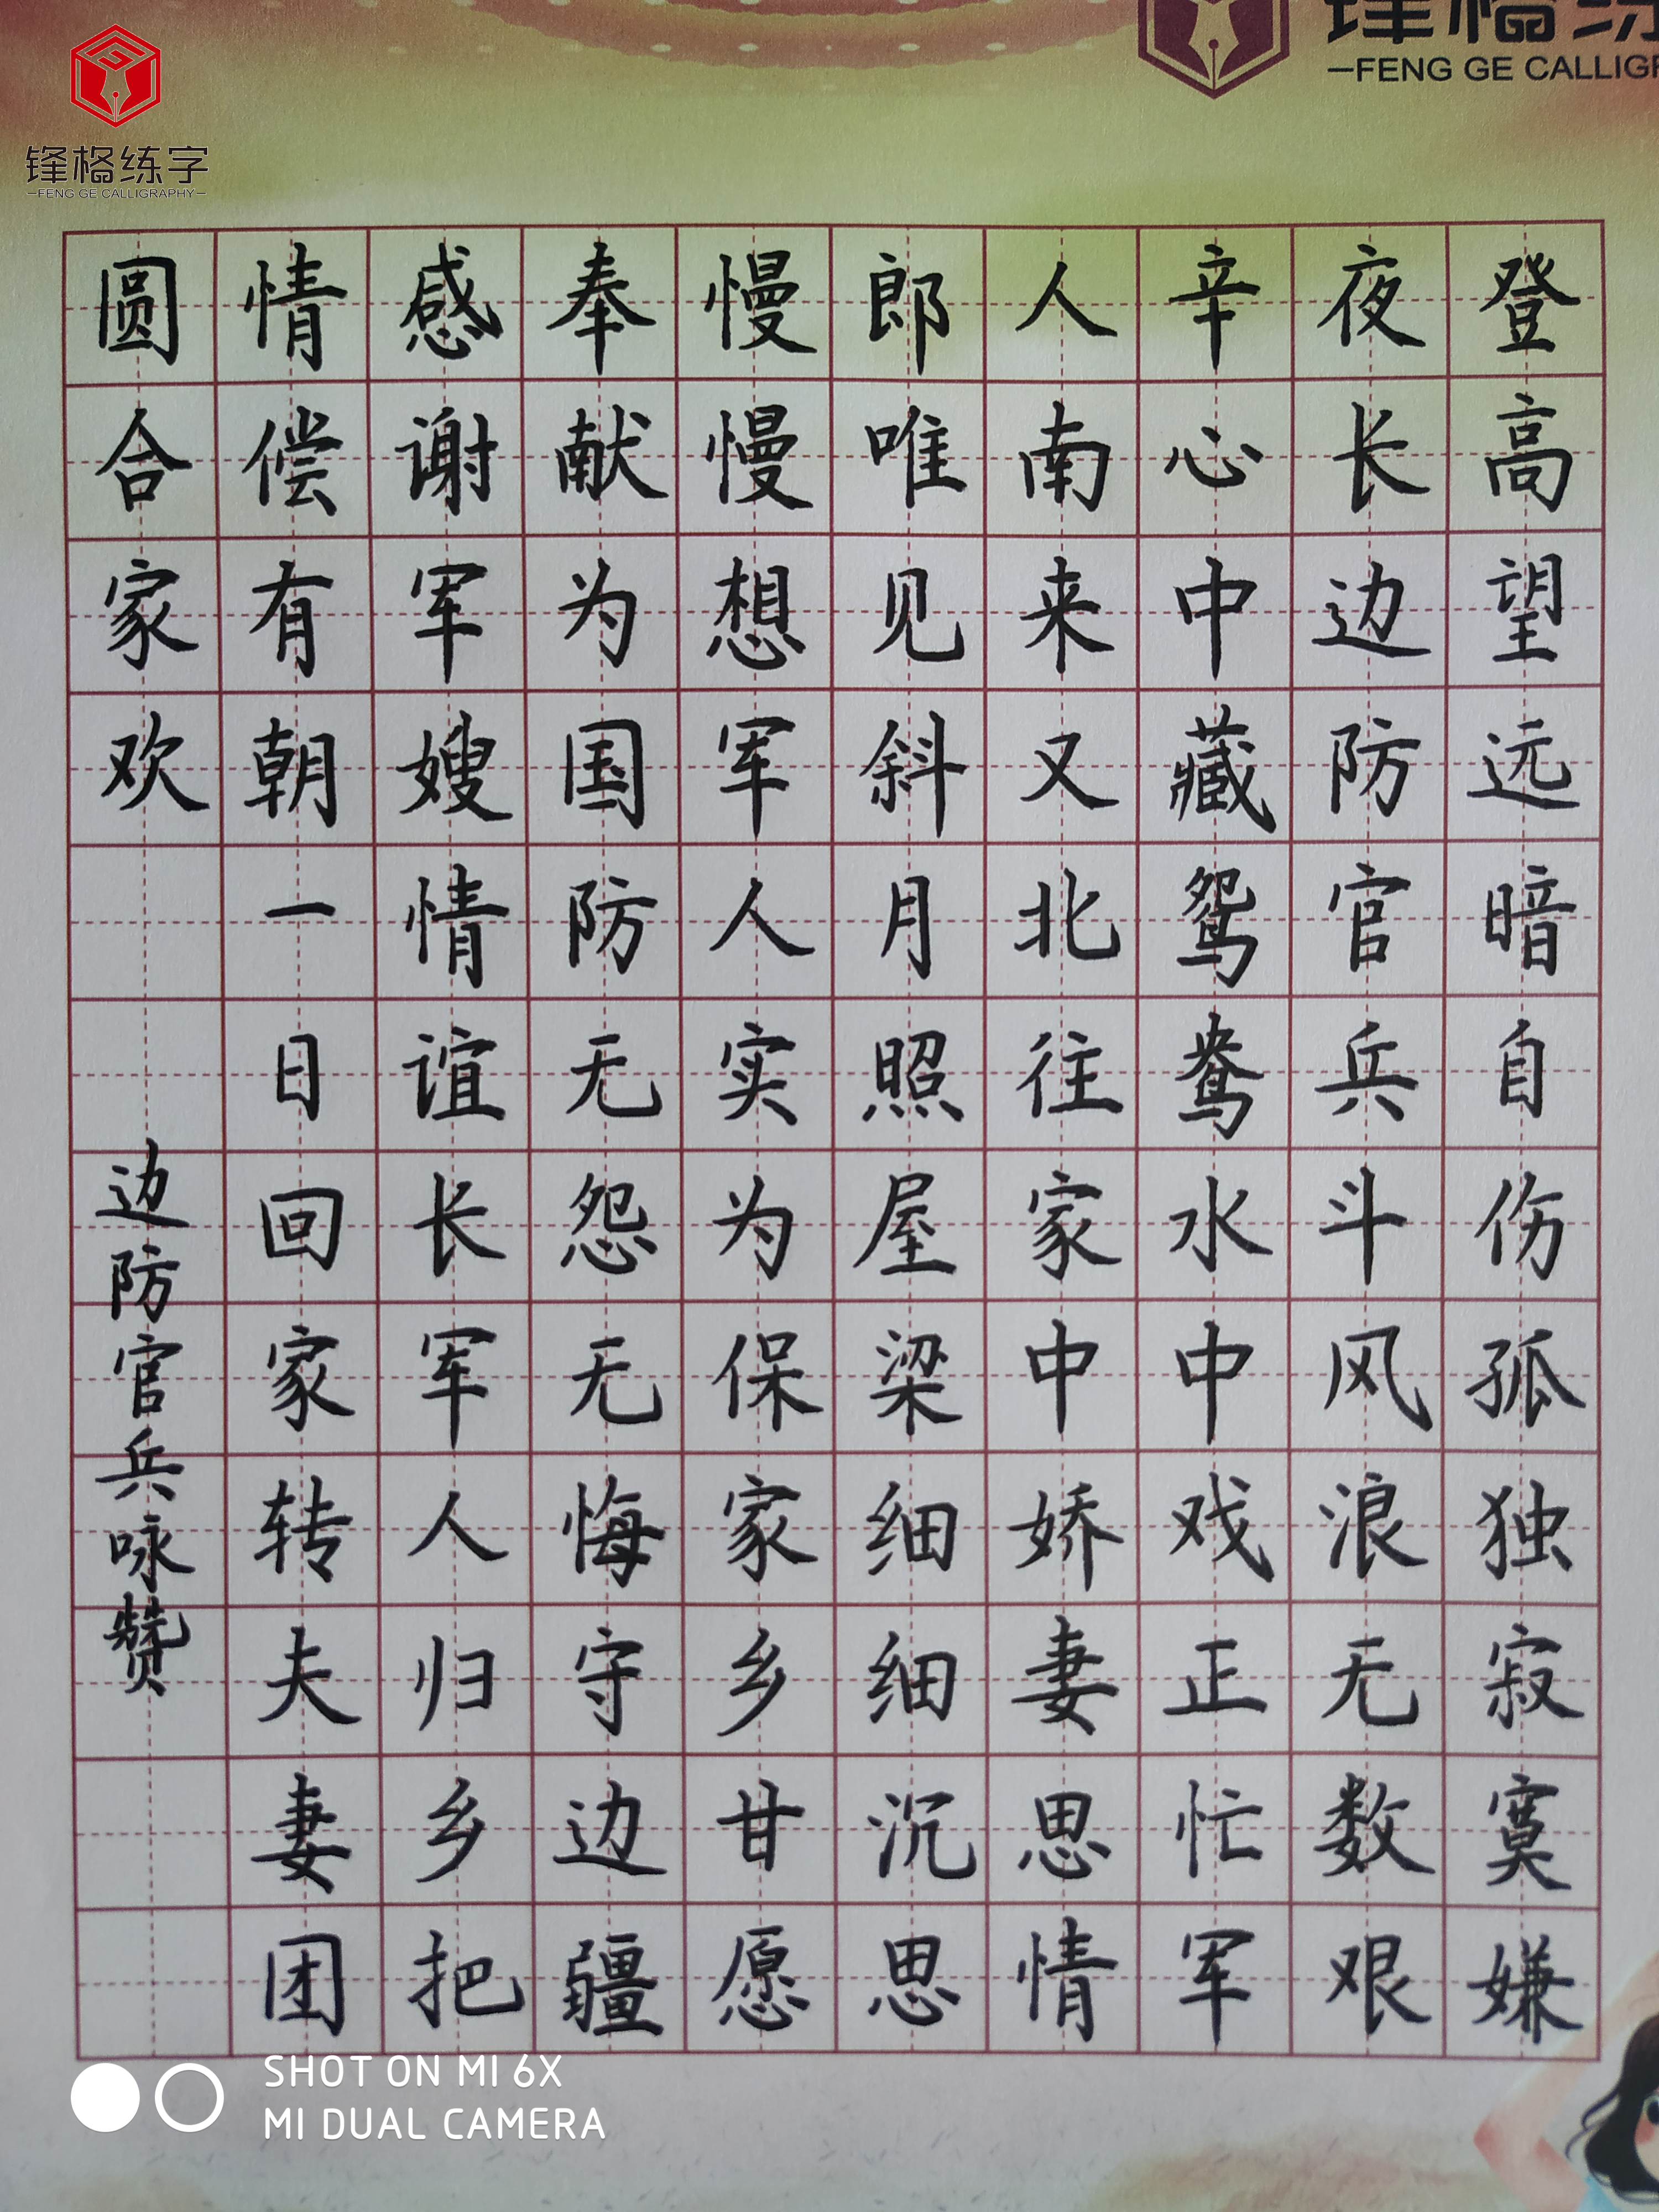 锋格练字
—FENG GE CALLIGRAPHY—
锋格练
—FENG GE CALLIGR
登高望远暗自伤孤独寂寞嫌
夜长边防官兵斗风浪无数艰
辛心中藏鸳鸯水中戏正忙军
人南来又北往家中娇妻思情
郎唯见斜月照屋梁细细沉思
慢慢想军人实为保家乡甘愿
奉献为国防无怨无悔守边疆
感谢军嫂情谊长军人归乡把
情偿有朝一日回家转夫妻团
圆合家欢
边防官兵咏赞
SHOT ON MI 6X
MI DUAL CAMERA